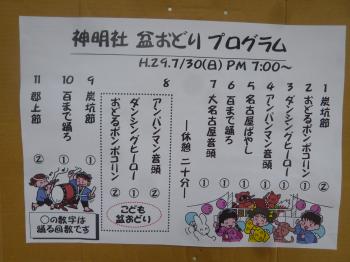 神明社 盆おどり プログラム
H.29.7/30(日) PM 7:00～
1 炭坑節 ②
2 おどるポンポコリン ①
3 ダンシングヒーロー ②
4 アンパンマン音頭 ①
5 名古屋ばやし ①
6 百まで踊ろ ①
7 大名古屋音頭 ①
―休憩 二十分―
8
アンパンマン音頭 ②
ダンシングヒーロー ②
おどるポンポコリン ②
こども
盆おどり
9 炭坑節 ②
10 百まで踊ろ ①
11 郡上節 ②
○の数字は
踊る回数です